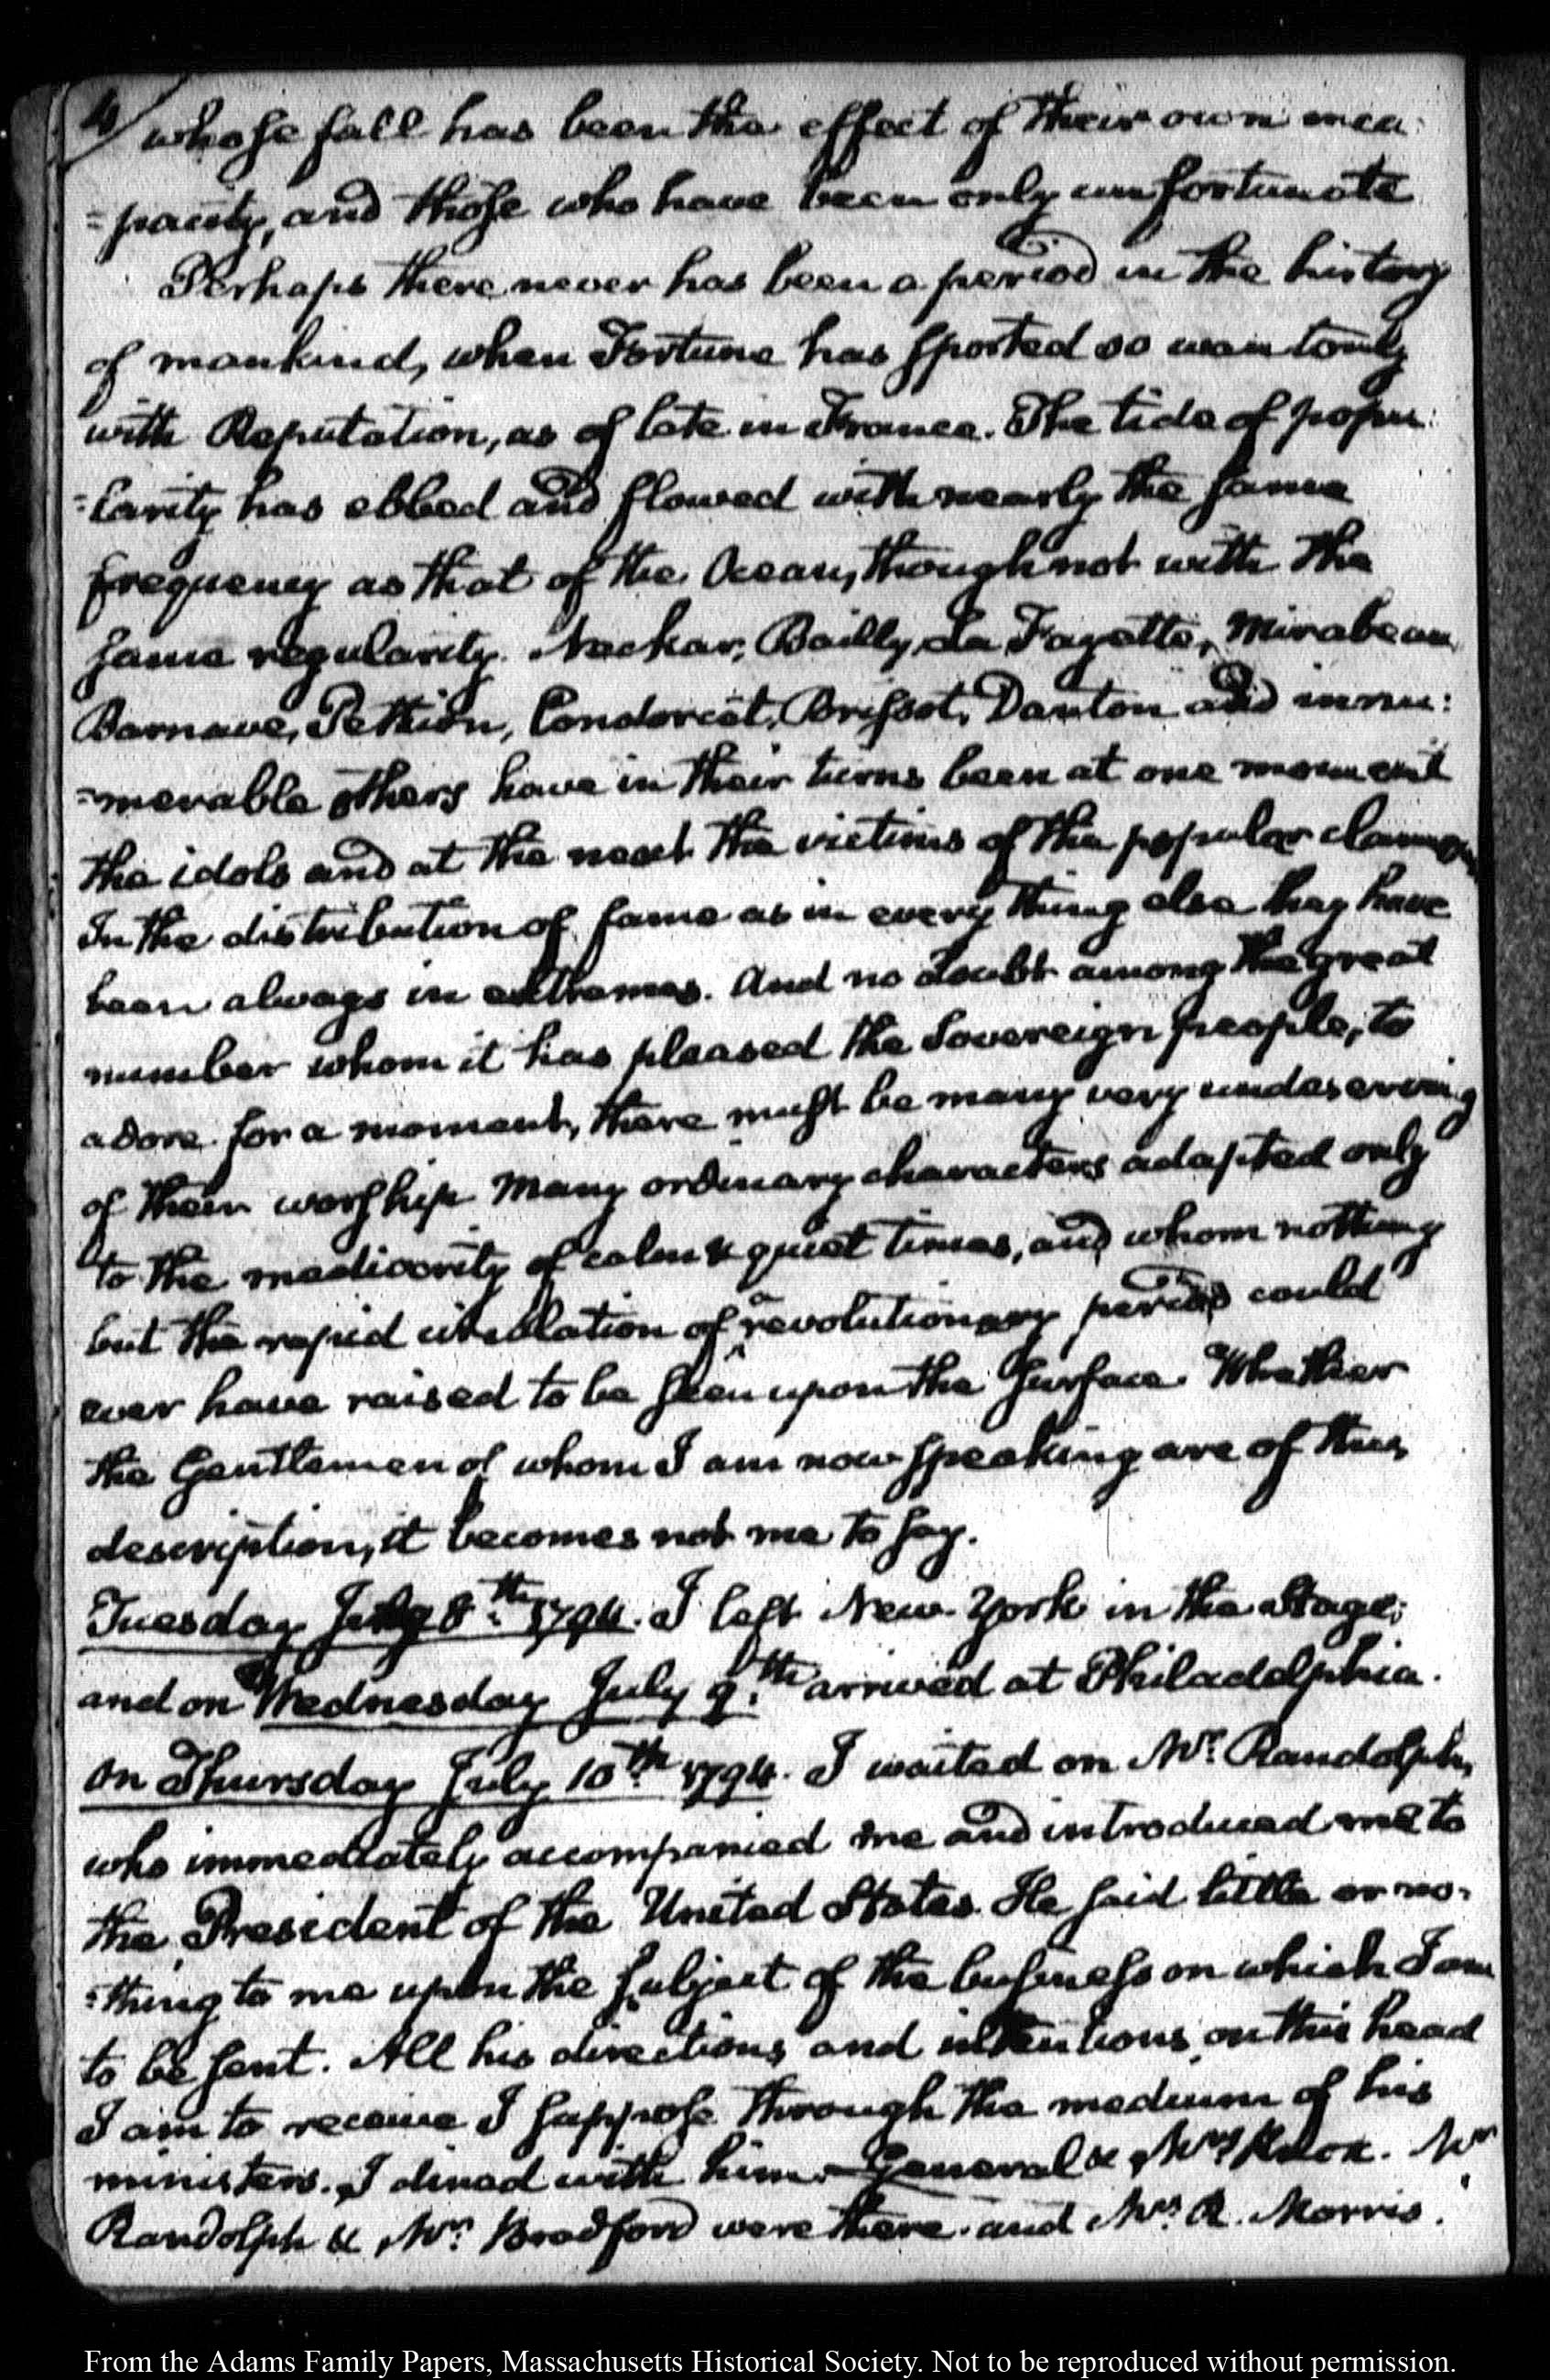 4/ whose fall has been the effect of their own inca:
=pacity, and those who have been only unfortunate
Perhaps there never has been a period in the history
of mankind, when Fortune has sported so wantonly
with Reputation, as of late in France. The tide of popu:
=larity has ebbed and flowed with nearly the same
frequency as that of the Ocean, though not with the
same regularity. Neckar, Bailly, La Fayette, Mirabeau
Barnave, Pethion, Condorcet, Brissot, Danton and innu:
=merable others have in their turns been at one moment
the idols and at the next the victims of the popular clamour
In the distribution of fame as in every thing else they have
been always in extremes. And no doubt among the great
number whom it has pleased the Sovereign people, to
adore for a moment, there must be many very undeserving
of their worship. Many ordinary characters adapted only
to the mediocrity of calm & quiet times, and whom nothing
but the rapid circulation of a revolutionary period could
ever have raised to be seen upon the surface. Whether
the Gentlemen of whom I am now speaking are of this
description, it becomes not me to say.
Tuesday July 8.th 1794. I left New York in the Stage;
and on Wednesday July 9.th arrived at Philadelphia.
On Thursday July 10.th 1794. I waited on Mr. Randolph,
who immediately accompanied me and introduced me to
the President of the United States. He said little or no:
=thing to me upon the subject of the business on which I am
to be sent. All his directions and intentions on this head
I am to receive I suppose through the medium of his
ministers. I dined with him. General & Mrs Knox. Mr
Randolph & Mr. Bradford were there. and Mrs. R. Morris.
From the Adams Family Papers, Massachusetts Historical Society. Not to be reproduced without permission.